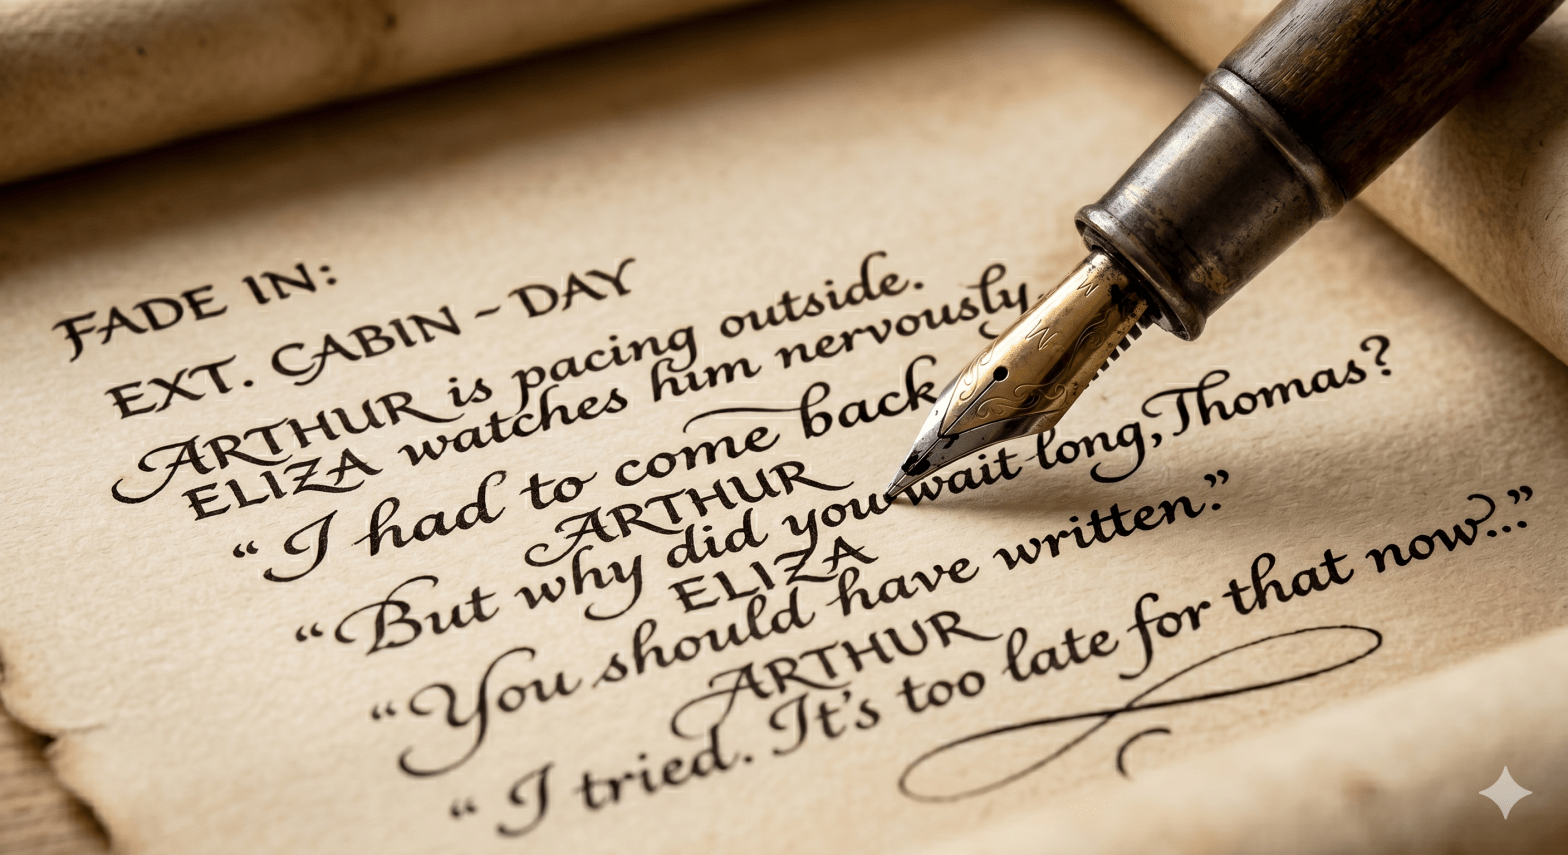 FADE IN:
EXT. CABIN - DAY
ARTHUR is pacing outside.
ELIZA watches him nervously.
“I had to come back
ARTHUR
“But why did you wait long, Thomas?
ELIZA
“You should have written.”
ARTHUR
“I tried. It's too late for that now...”